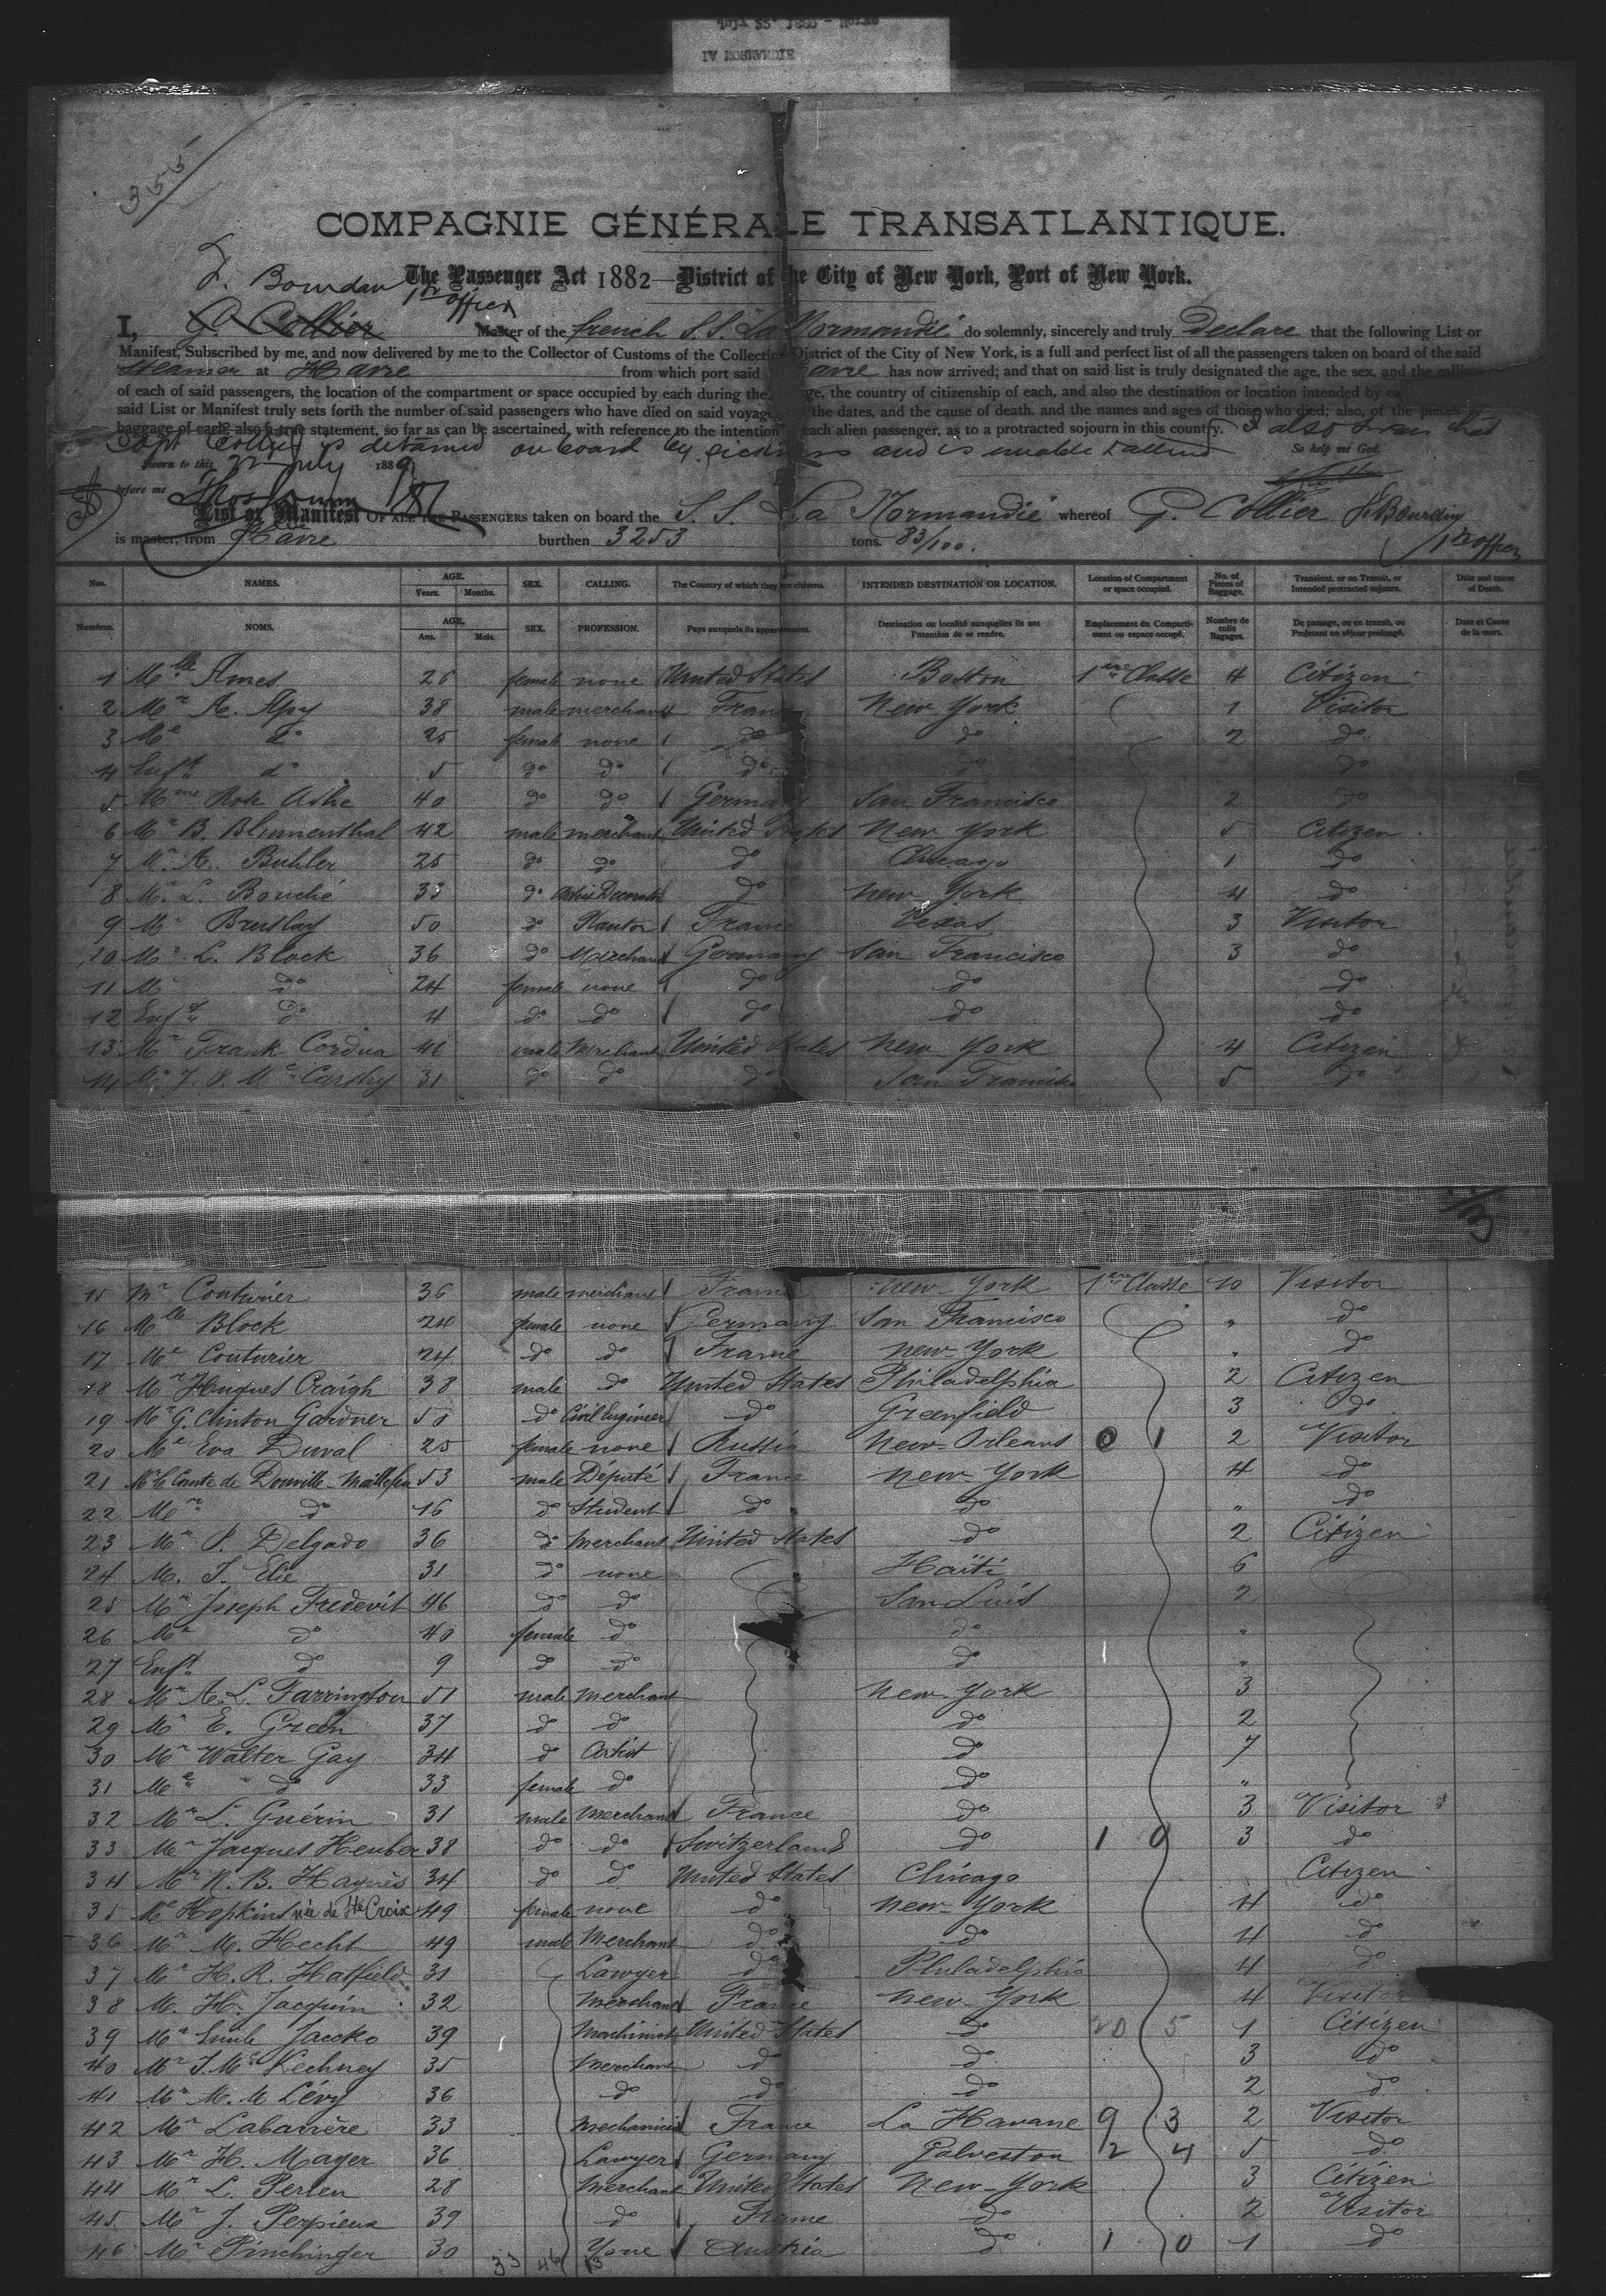 355
COMPAGNIE GÉNÉRALE TRANSATLANTIQUE.
The Passenger Act 1882 — District of the City of New York, Port of New York.
F. Bourdan 1er officer
I, G. Collier Master of the french S.S. La Normandie do solemnly, sincerely and truly Declare that the following List or
Manifest, Subscribed by me, and now delivered by me to the Collector of Customs of the Collection District of the City of New York, is a full and perfect list of all the passengers taken on board of the said
Steamer at Havre from which port said Havre has now arrived; and that on said list is truly designated the age, the sex, and the calling
of each of said passengers, the location of the compartment or space occupied by each during the voyage, the country of citizenship of each, and also the destination or location intended by ea
said List or Manifest truly sets forth the number of said passengers who have died on said voyage the dates, and the cause of death, and the names and ages of those who died; also, of the pieces
baggage of each also a true statement, so far as can be ascertained, with reference to the intention each alien passenger, as to a protracted sojourn in this country. I also swear that
Capt Collier is detained on board by sickness and is unable to attend So help me God.
Sworn to this 22 July 1889
before me
List or Manifest OF ALL THE PASSENGERS taken on board the S. S. La Normandie whereof G. Collier F. Bourdan
is master, from Havre burthen 3253 tons. 83/100. 1er officer
Nos. NAMES. AGE. Years. Months. SEX. CALLING. The Country of which they are citizens. INTENDED DESTINATION OR LOCATION. Location of Compartment or space occupied. No. of Pieces of Baggage. Transient. or on Transit, or Intended protracted sojourn. Date and cause of Death.
Numéros. NOMS. AGE. Ans. Mois. SEX. PROFESSION. Pays auxquels ils appartiennent. Destination ou localité auxquelles ils ont l'intention de se rendre. Emplacement du Compartiment ou espace occupé. Nombre de colis Bagages. De passage, ou en transit, ou Projetant un séjour prolongé. Date et Cause de la mort.
1 Mlle Ames 26 female none United States Boston 1ère Classe 4 Citizen
2 Mr A. Apy 38 male merchant France New York 1 Visitor
3 Me do 25 female none do do 2 do
4 Enft do 5 do do do do do
5 Mme Rose Ashe 40 do do Germany San Francisco 2 do
6 Mr B. Blumenthal 42 male merchant United States New York 5 Citizen
7 Mr A. Buhler 25 do do do Chicago 1 do
8 Mr L. Bouché 33 do do New York 4 do
9 Mr 50 do Plantor France Texas 3 Visitor
10 Mr L. Block 36 do Merchant Germany San Francisco 3 do
11 Me do 24 female none do do do
12 Enft do 4 do do do do do
13 Mr Frank Cordua 46 male Merchant United States New York 4 Citizen
14 Mr J. S. Mc Carthy 31 do do do San Francisco 5 do
15 Mr Couturier 36 male merchant France New York 1ère Classe 10 Visitor
16 Mlle Block 24 female none Germany San Francisco " do
17 Me Couturier 24 do do France New York " do
18 Mr Hugues Craigh 38 male do United States Philadelphia 2 Citizen
19 Mr G. Clinton Gardner 50 do Civil Engineer do Greenfield 3 do
20 Me Eva Duval 25 female none Russia New Orleans 0 1 2 Visitor
21 Mr le Comte de Douville-Maillefeu 53 male Député France New York 4 do
22 Mr do 16 do Student do do " do
23 Mr S. Delgado 36 do Merchant United States do 2 Citizen
24 M. T. Elie 31 do none Haïti 6
25 Mr Joseph Fredevit 46 do do San Luis 2
26 Me do 40 female do do "
27 Enft do 9 do do do "
28 Mr A. L. Farrington 51 male Merchant New York 3
29 Mr E. Green 37 do do do 2
30 Mr Walter Gay 34 do Artist do 7
31 Me do 33 female do do "
32 Mr L. Guérin 31 male Merchant France do 3 Visitor
33 Mr Jacques Heuber 38 do do Switzerland do 1 0 3 do
34 Mr R. B. Haynes 34 do do United States Chicago Citizen
35 Me Hopkins née de Ste Croix 49 female none do New York 4 do
36 Mr M. Hecht 49 male Merchant do do 4 do
37 Mr H. R. Hatfield 31 Lawyer do Philadelphia 4 do
38 M. H. Jacquin 32 Merchant France New York 4 Visitor
39 Mr Emile Jaccko 39 Machinist United States do 20 5 1 Citizen
40 Mr J. Mc Kechney 35 Merchant do do 3 do
41 Mr M. M Lévy 36 do do do 2 do
42 Mr Labarrère 33 mechanicien France La Havane 9 3 2 Visitor
43 Mr H. Mayer 36 Lawyer Germany Galveston 2 4 5 do
44 Mr L. Perlen 28 Merchant United States New York 3 Citizen
45 Mr J. Perpieux 39 do France do 2 Visitor
46 Mr Pinchinger 30 None Austria do 1 0 1 do
33 46 13